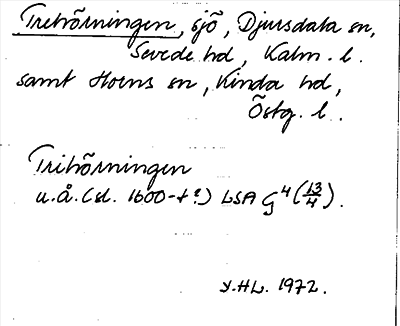 Trehörningen, sjö, Djursdala sn,
Sevede hd, Kalm. l.
samt Horns sn, Kinda hd,
Östg. l.
Trihörningen
u.å. (sl. 1600-t?) LSA G⁴ (13/4).
Y.HL. 1972.